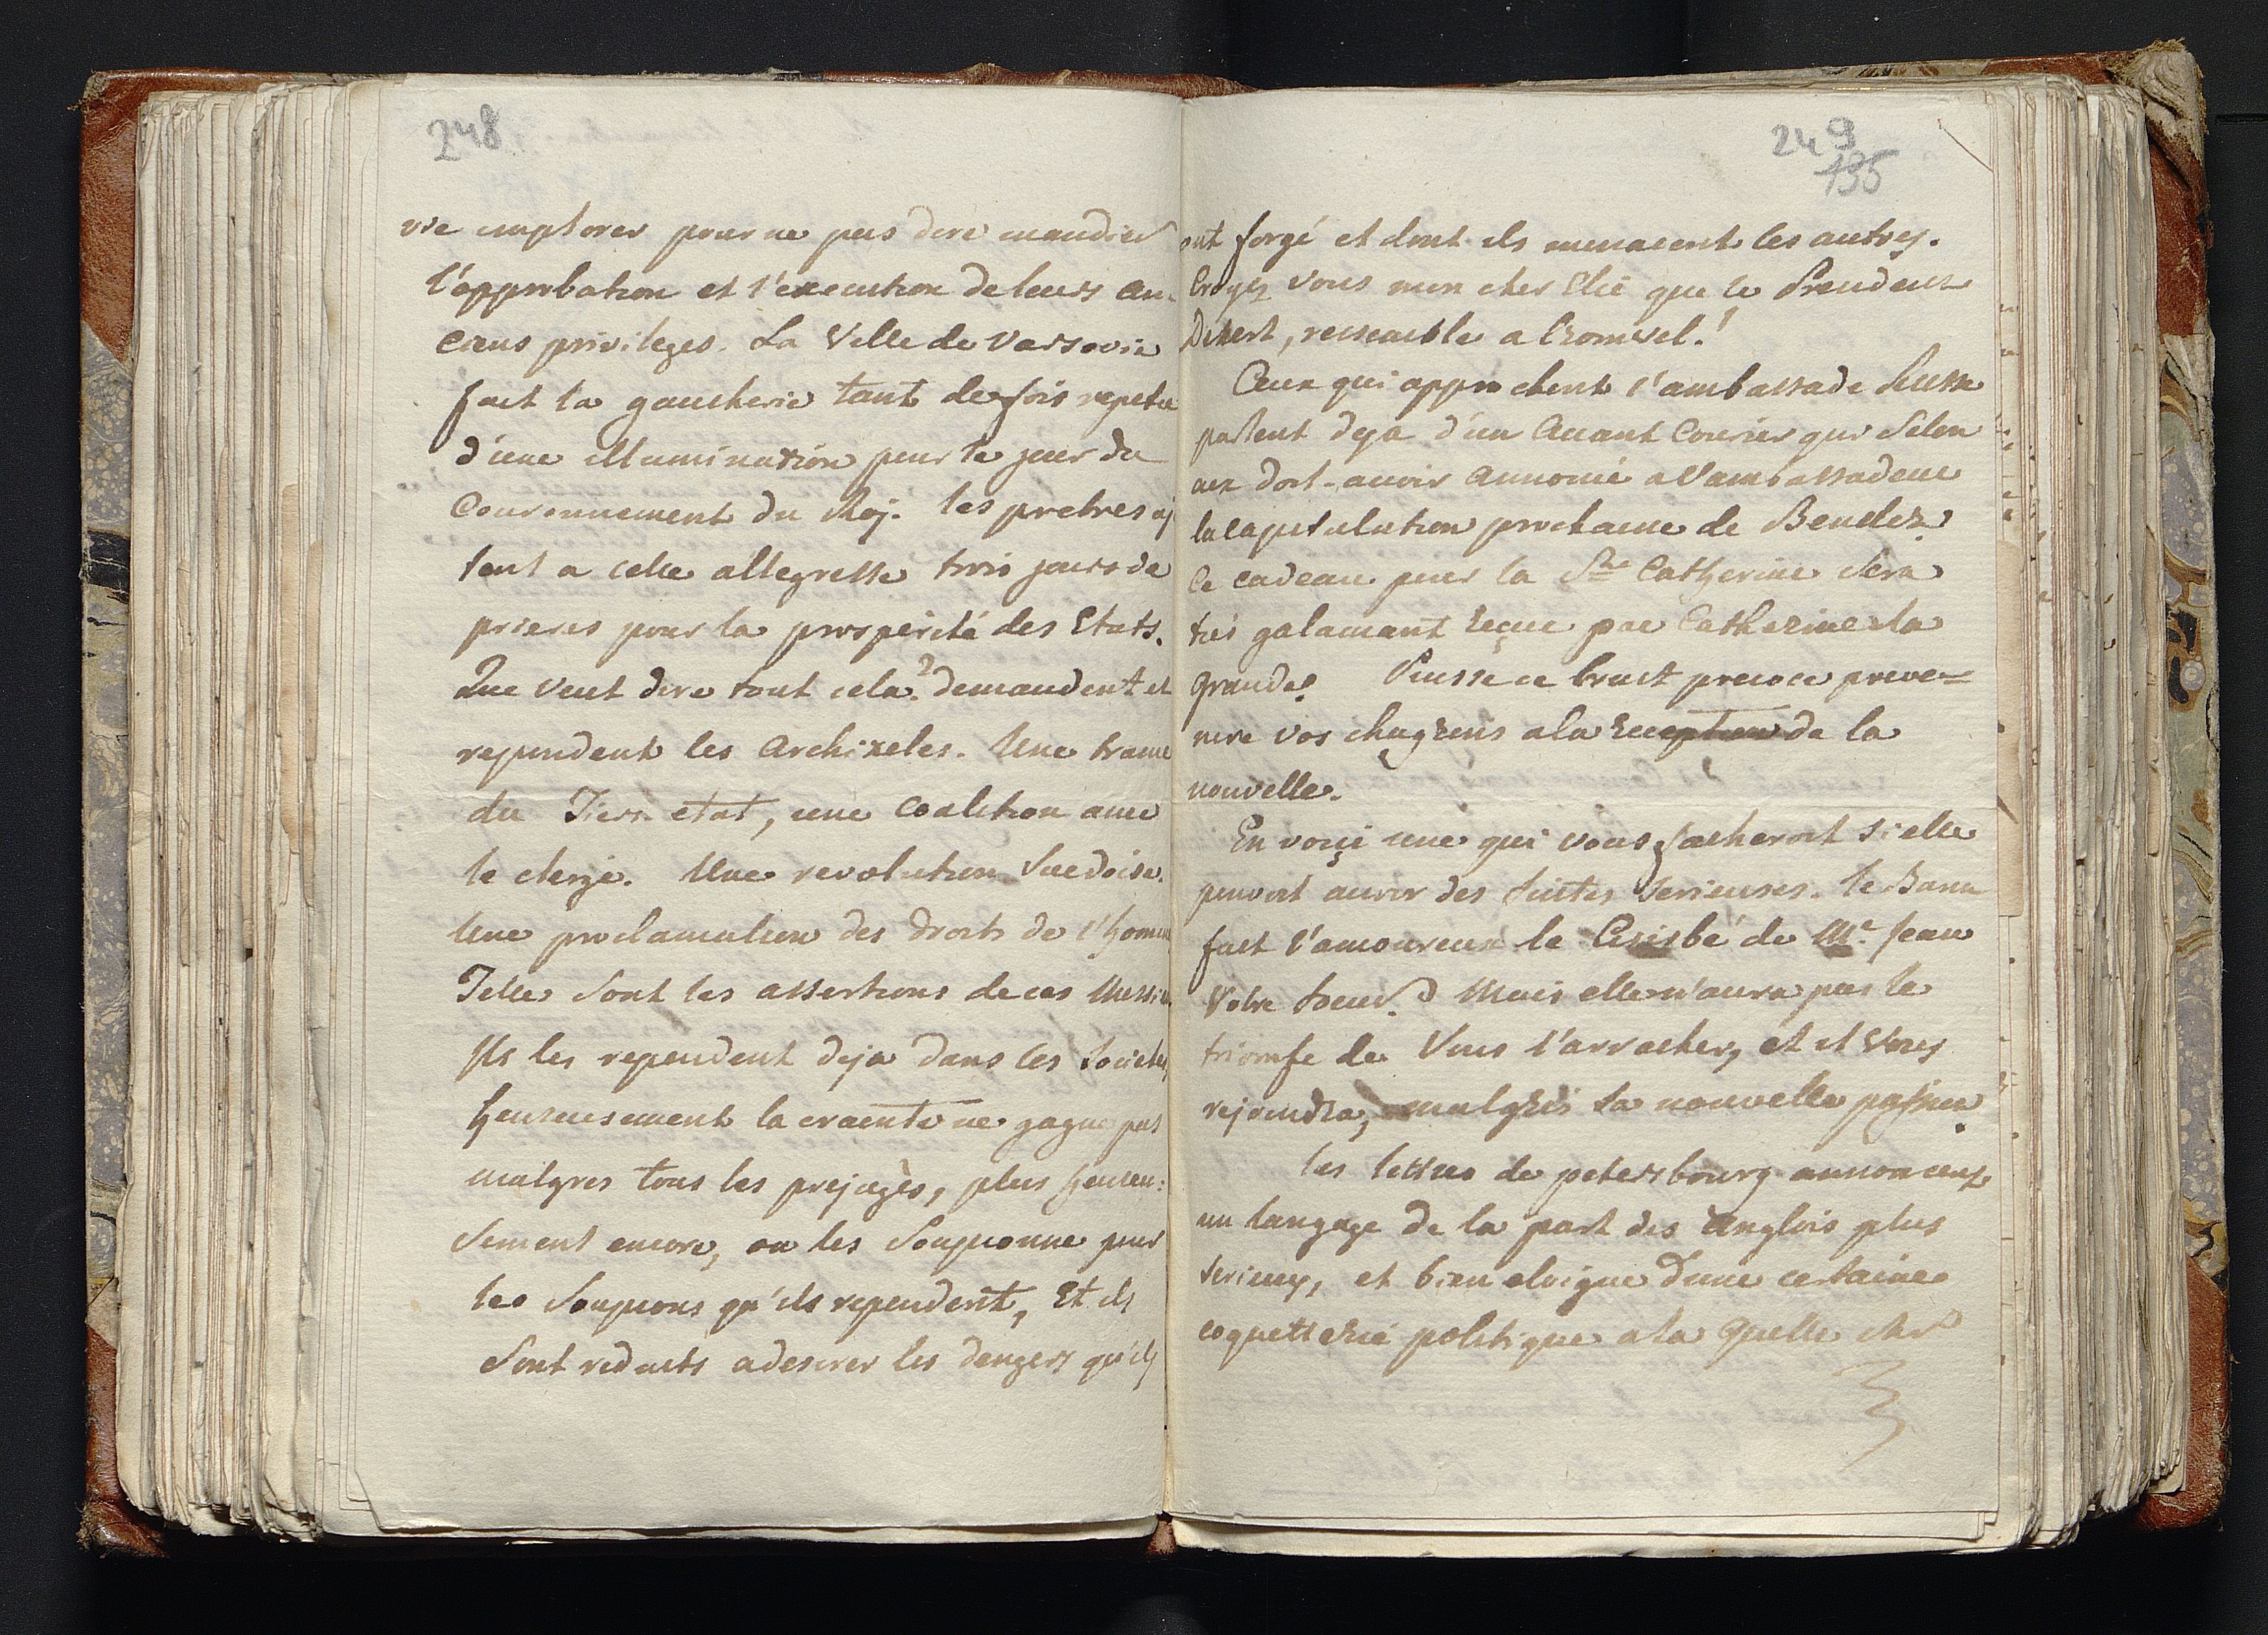 248
vre implorer pour ne pas dire mandier
l'approbation et l'execution de leurs an-
ciens privileges. La Ville de Varsovie
fait la gaucherie tant de fois repetée
d'une illumination pour le jour du
Couronnement du Roj. les pretres aj
tent a cette allegresse trois jours de
prieres pour la prosperité des Etats.
Que veut dire tout cela? demandent et
rependent les Archizeles. Une trame
du Tiers etat, une Coalition avec
le clergé. Une revolution Suedoise.
Une proclamation des droits de l'homme
Telles sont les assertions de ces Messie
Ils les rependent deja dans les Societes,
heureusement la crainte ne gagne pas
malgres tous les prejugès, plus heureu:
sement encore, on les Soupconne pour
les Soupcons qu'ils rependent, Et ils
sont reduits a desirer les dangers qu'ils
249
135
ont forgé et dont ils menacent les autres.
Croyez vous mon cher Elie que le President
Dekert, ressemble a Cromvel!
Ceux qui approchent l'ambassade Russe
parlent deja d'un Avant Courier qui Selon
eux doit avoir annoncé a l'ambassadeur
la capitulation prochaine de Bender.
Ce cadeau pour la Ste Catherine sera
très galamant reçue par Catherine la
grande. Puisse ce bruit precoce preve=
nire vos chagrens a la reception de la
nouvelle.
En voiçi une qui vous facheroit si elle
pouvoit avoir des suites serieuses. le Baron
fait l'amoureux le Cisisbé de Me Jean
Votre Soeur. Mais elle n'aura pas le
triomfe de Vous l'arracher, et il Vous
rejoindra, malgrès sa nouvelle passion.
les lettres de petersbourg annoncent
un langage de la part des Anglois plus
serieux, et bien eloigné d'une certaine
coquetterie politique a la quelle